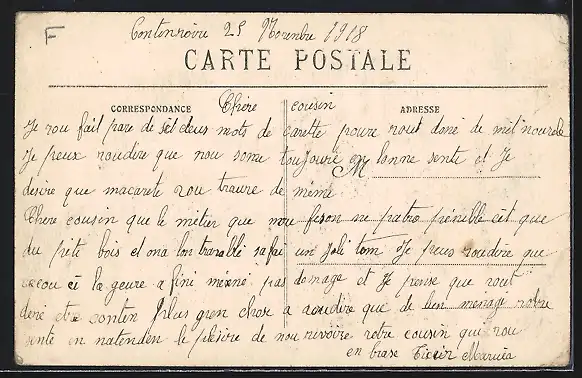 F
Contenvoire 25 Novenbre 1918
CARTE POSTALE
CORRESPONDANCE Chere cousin ADRESSE
Je vou fait pare de sét deus mots de carette poure vout doné de mes nouvele
Je peux voudire que nou some toujoure en bonne sente et Je
M
desire que macarete vou trouve de mémé
Chere cousin que le métier que nou feson ne patro pénible cét que
du péte bois et on a bon travallé sa fai un Joli tom Je peus voudire que
cecou ci la geure a finé méné pas domage et Je pense que vout
devé etre conten plus gren chose a voudire que de bien menage votre
sente en natenden le plésire de nou revoire votre cousin qui vou
en brase Maruis